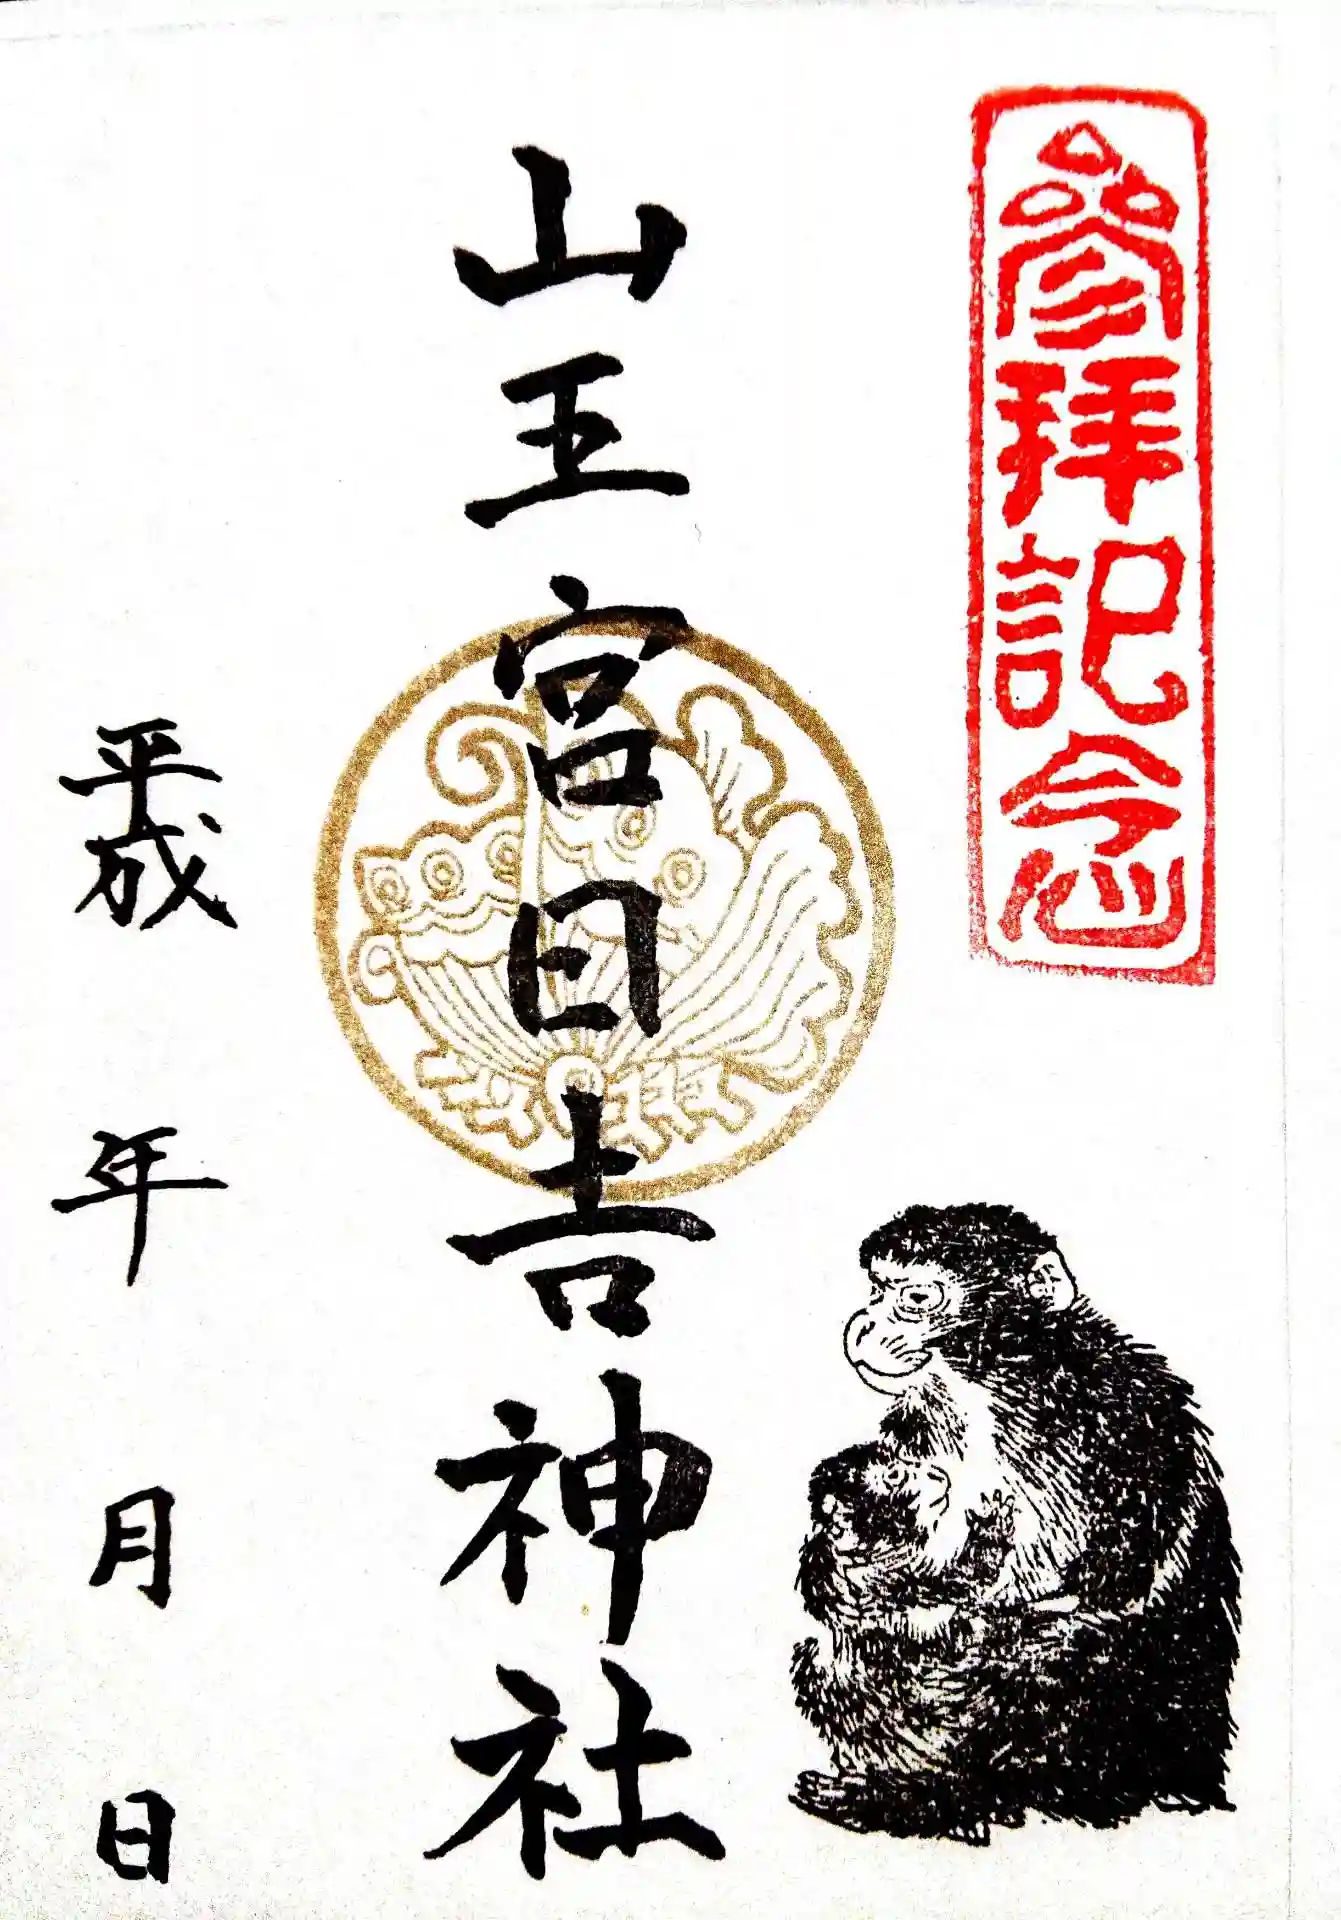 参拝記念
山王宮日吉神社
平成　年　月　日